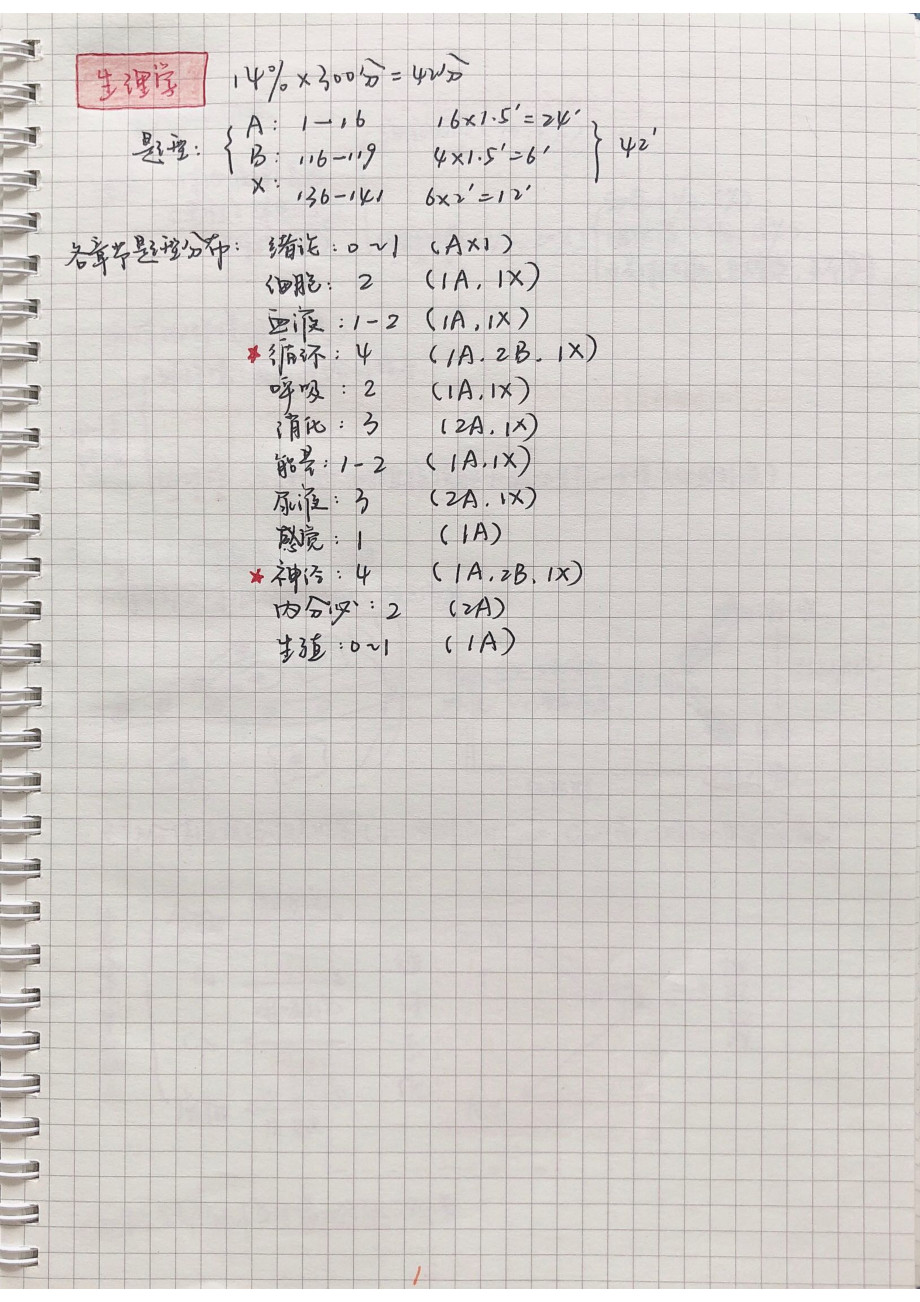 生理学 14%×300分=42分
题型: { A: 1-16 16×1.5'=24' } 42'
B: 116-119 4×1.5'=6'
X: 136-141 6×2'=12'
各章节题型分布: 绪论:0~1 (A×1)
细胞: 2 (1A, 1X)
血液:1-2 (1A,1X)
★循环: 4 (1A.2B.1X)
呼吸: 2 (1A,1X)
消化: 3 (2A.1X)
能量:1-2 (1A.1X)
尿液:3 (2A.1X)
感觉:1 (1A)
★神经:4 (1A.2B.1X)
内分泌:2 (2A)
生殖:0~1 (1A)
1